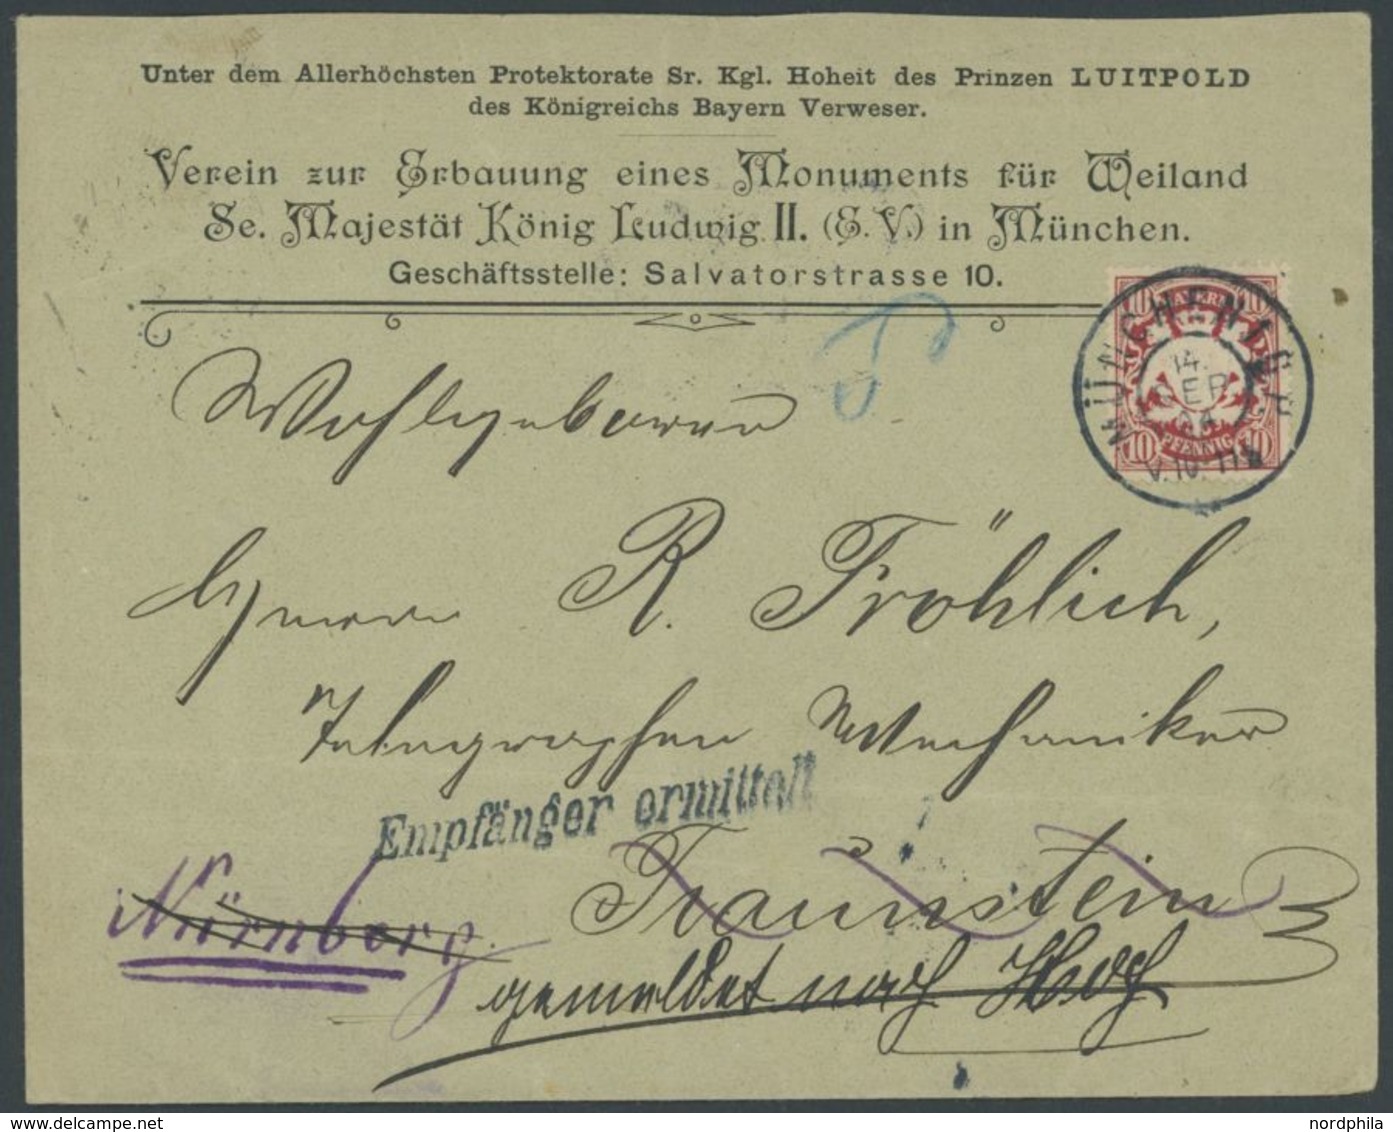 Unter dem Allerhöchsten Protektorate Sr. Kgl. Hoheit des Prinzen LUITPOLD
des Königreichs Bayern Verweser.
Verein zur Erbauung eines Monuments für Weiland
Se. Majestät König Ludwig II. (E. V.) in München.
Geschäftsstelle: Salvatorstrasse 10.
BAYERN
10 10
PFENNIG
MÜNCHEN
14.
SEP.
Wohlgeboren
Herrn R. Fröhlich,
Telegraphen Mechaniker
Empfänger ermittelt
Traunstein
Nürnberg
gemeldet nach
nordphila